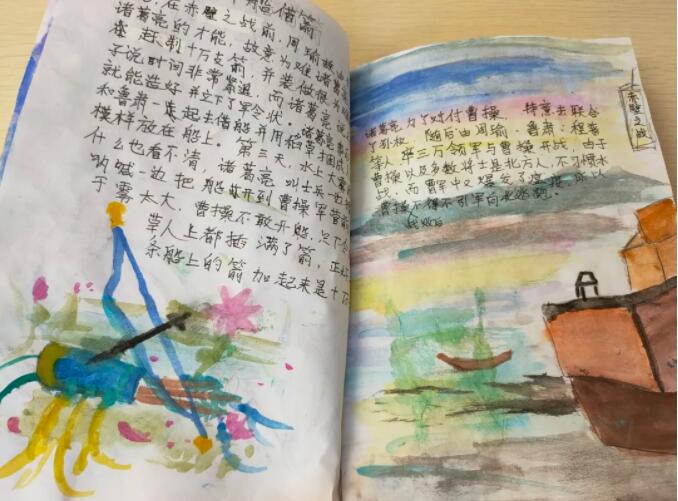 船借箭
在赤壁之战前,周瑜
诸葛亮的才能,故意为难诸葛亮
赶制十万支箭,并装做很为
子说时间非常紧迫,而诸葛亮说
就能造好并立下了军令状。诸葛亮
和鲁肃一起去借船并用稻草扎
模样放在船上。第三天,水上大雾
什么也看不清,诸葛亮叫士兵一边
呐喊一边把船开到曹操军营前
于雾太大,曹操不敢开船,只下令
草人上都插满了箭,正好
条船上的箭加起来是十万
赤壁之战
诸葛亮为了对付曹操,特意去联合
了孙权,随后由周瑜、鲁肃、程普
等人率三万领军与曹操开战,由于
曹操以及多数将士是北方人,不习惯水
战,而曹军中又爆发了疫,所以
曹操不得不引军向北逃
战败后